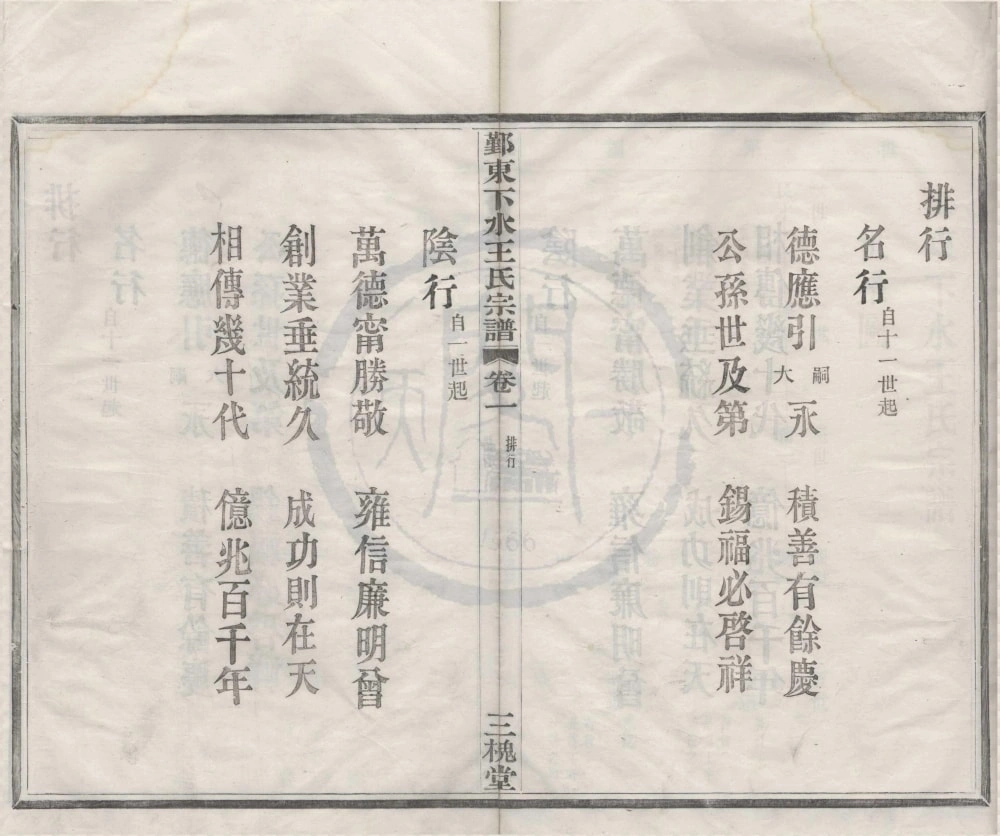 排行
名行 自十一世起
德應引嗣大永 積善有餘慶
公孫世及第 錫福必啓祥
鄞東下水王氏宗譜 卷一 排行 三槐堂
陰行 自一世起
萬德甯勝敬 雍信廉明曾
創業垂統久 成功則在天
相傳幾十代 億兆百千年